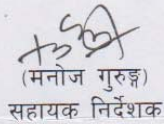 (मनोज गुरुङ्ग)
सहायक निर्देशक